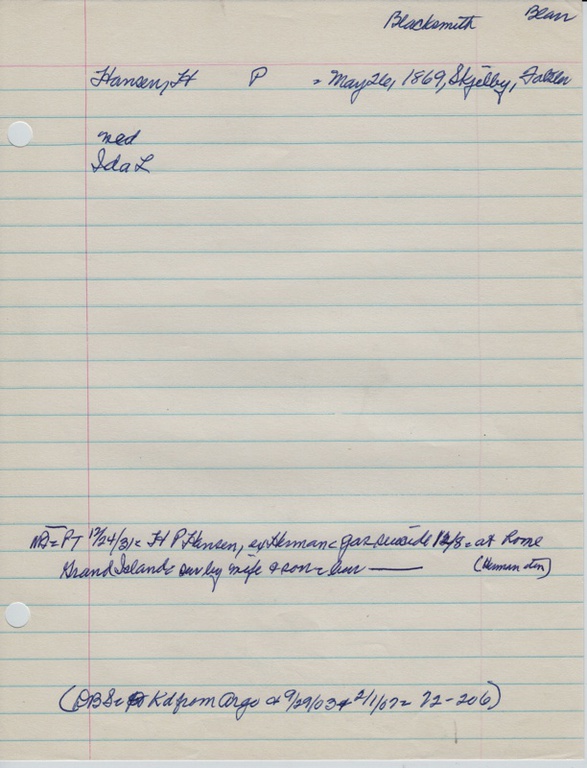 Blacksmith Bear
Hansen, H P = May 26, 1869, Skjelby, Falster
med
Ida L
= PT 12/24/31 = H P Hansen, ex Herman = gas suicide 12/8 = at home
Grand Island = sur by wife & son =
(Herman
Kd from Argo 9/29/03 & 2/1/07 = 72-206)